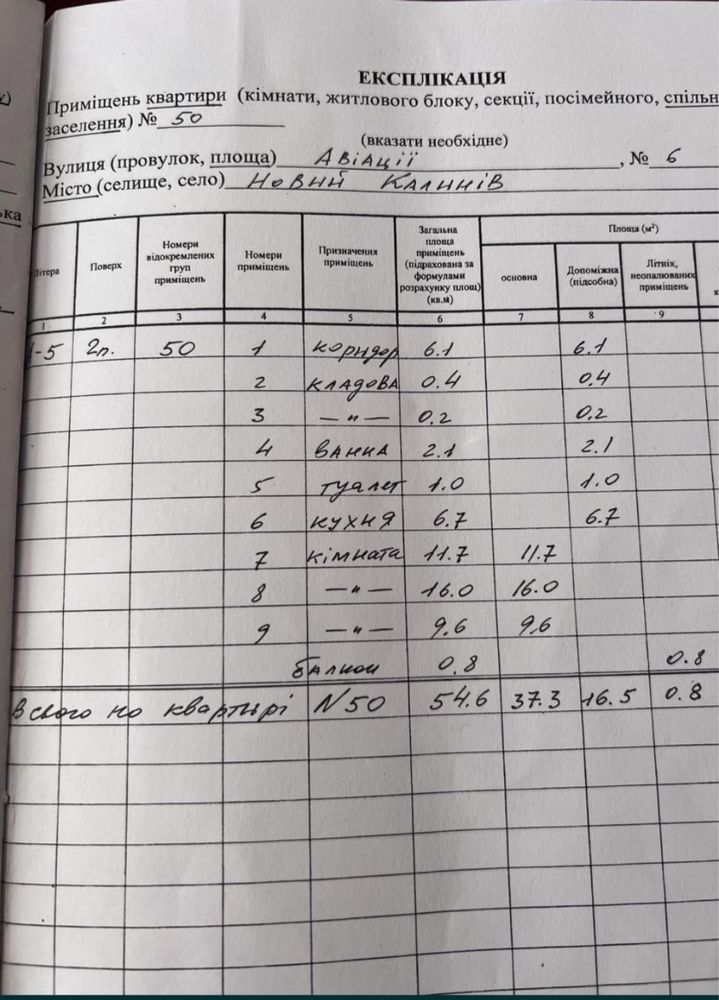 ЕКСПЛІКАЦІЯ
Приміщень квартири (кімнати, житлового блоку, секції, посімейного, спільн
заселення) № 50
(вказати необхідне)
Вулиця (провулок, площа) Авіації, № 6
Місто (селище, село) Новий Калинів
ька
Літера Поверх Номери відокремлених груп приміщень Номери приміщень Призначення приміщень Загальна площа приміщень (підрахована за формулами розрахунку площ) (кв.м) Площа (м²) основна Допоміжна (підсобна) Літніх, неопалюваних приміщень
1 2 3 4 5 6 7 8 9
-5 2п. 50 1 коридор 6.1 6.1
2 кладова 0.4 0.4
3 —"— 0.2 0.2
4 ванна 2.1 2.1
5 туалет 1.0 1.0
6 кухня 6.7 6.7
7 кімната 11.7 11.7
8 —"— 16.0 16.0
9 —"— 9.6 9.6
балкон 0.8 0.8
Всього по квартирі N50 54.6 37.3 16.5 0.8